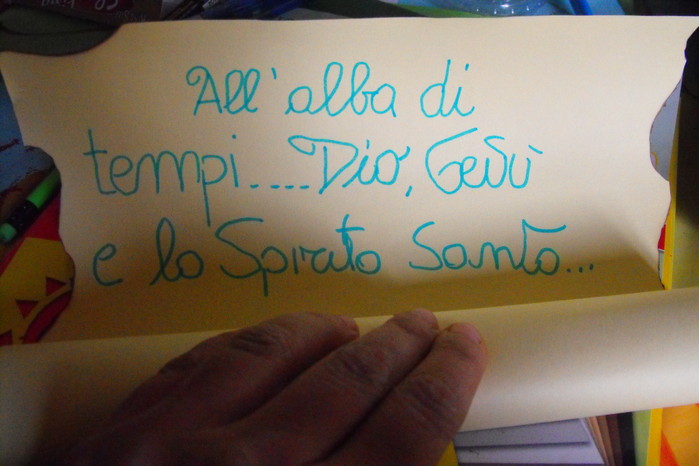 All'alba di
tempi....Dio, Gesù
e lo Spirito Santo...